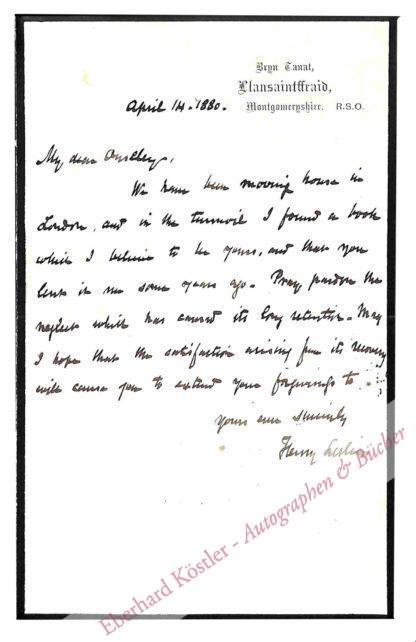 Bryn Tanat,
Llansaintffraid,
Montgomeryshire. R.S.O.
April 14. 1880.
My dear
We have been moving house in
London, and in the turmoil I found a book
which I believe to be yours, and that you
lent it me some years ago. Pray pardon the
neglect which has caused its long retention. May
I hope that the satisfaction arising from its recovery
will cause you to extend your forgiveness to
yours ever sincerely
Henry Leslie
Eberhard Köstler - Autographen & Bücher